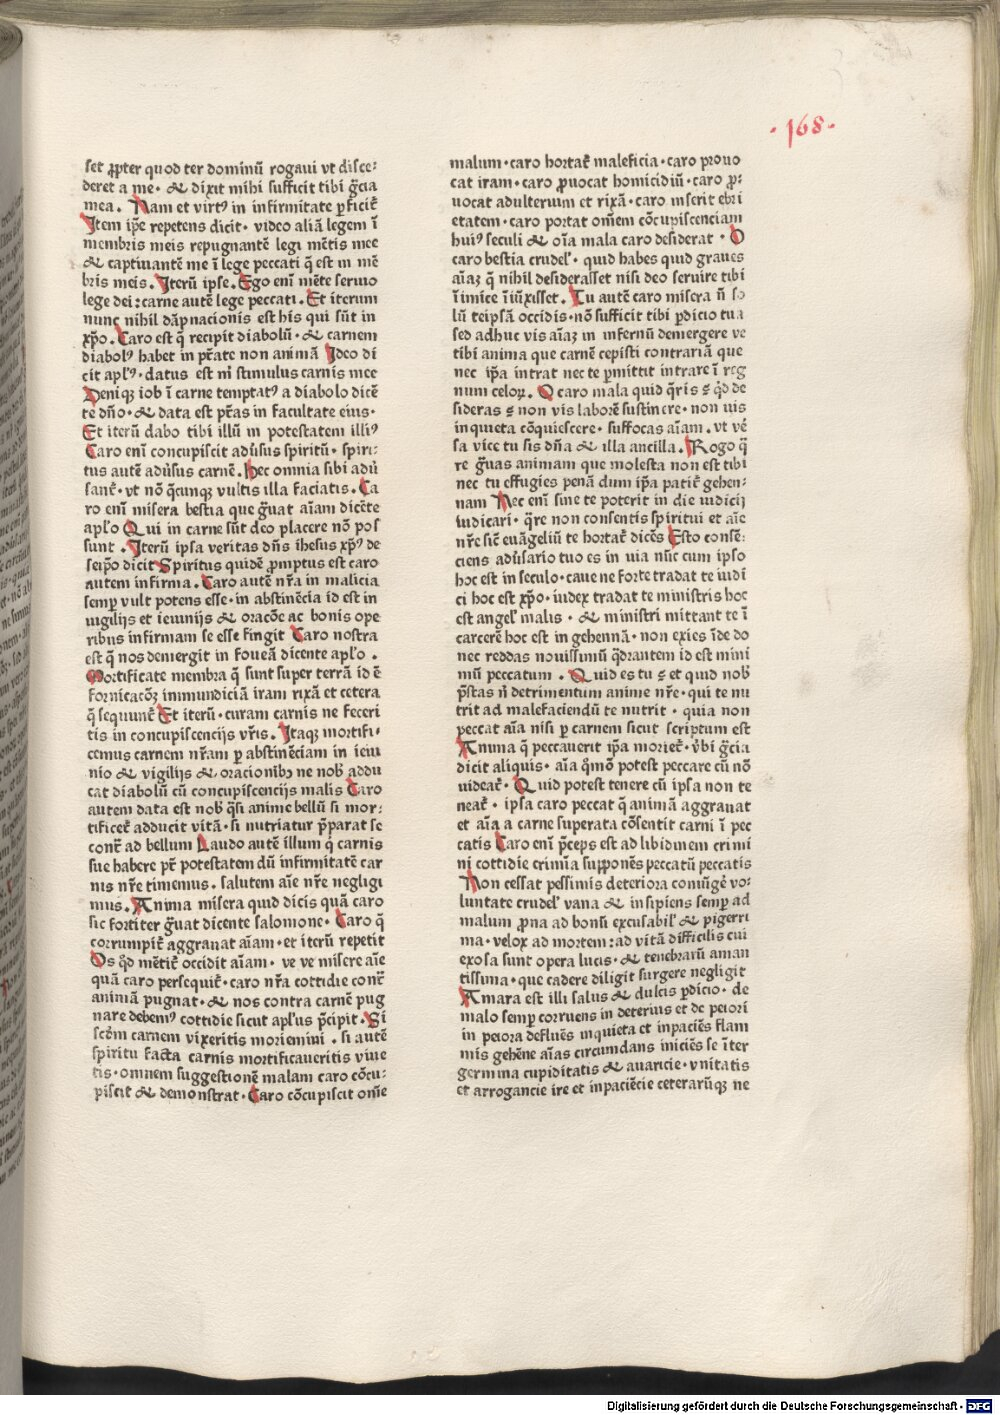 ·168·
set ꝓpter quod ter dominū rogaui vt disce⸗
deret a me · & dixit mihi sufficit tibi gr̄cia
mea . Nam et virtꝰ in infirmitate ꝑficit᷑
Item ip̄e repetens dicit · video aliā legem ī
membris meis repugnantē legi mētis mee
& captiuantē me ī lege peccati q̄ est in mē
bris meis . Iterū ipse . Ego enī mēte seruio
lege dei : carne autē lege peccati . Et iterum
nunc nihil dāpnacionis est his qui sūt in
xp̄o . Caro est q̄ recipit diabolū · & carnem
diabolꝰ habet in ptāte non animā Ideo di
cit aplꝰ · datus est m̄ stimulus carnis mee
Deniqꝫ iob ī carne temptatꝰ a diabolo dicē
te dn̄o · & data est ptās in facultate eius ·
Et iterū dabo tibi illū in potestatem illiꝰ
Caro enī concupiscit adūsus spiritū · spiri⸗
tus autē adūsus carnē . Hec omnia sibi adū
sant᷑ · vt nō q̄cunqꝫ vultis illa faciatis . Ca
ro enī misera bestia que gr̄uat aīam dicēte
aplo Qui in carne sūt deo placere nō pos
sunt . Iterū ipsa veritas dn̄s ihesus xp̄ꝰ de
seip̄o dicit Spiritus quidē ꝓmptus est caro
autem infirma . Caro autē nr̄a in malicia
semꝑ vult potens esse · in abstinēcia id est in
uigilijs et ieiunijs & oracōe ac bonis ope
ribus infirmam se esse fingit Caro nostra
est q̄ nos demergit in foueā dicente aplo .
Mortificate membra q̄ sunt super terrā id ē
fornicacōꝫ inmundiciā iram rixā et cetera
q̄ sequunt᷑ Et iterū · curam carnis ne feceri
tis in concupiscencijs vr̄is . Itaqꝫ mortifi⸗
cemus carnem nr̄am ꝑ abstinēciam in ieiu
nio & vigilijs & oracionibꝫ ne nob̄ addu
cat diabolū cū concupiscencijs malis Caro
autem data est nob̄ q̄si anime bellū si mor⸗
tificet᷑ adducit vitā · si nutriatur p̄parat se
contr̄ ad bellum Laudo autē illum q̄ carnis
sue habere pt̄ potestatem dū infirmitatē car
nis nr̄e timemus . salutem aīe nr̄e negligi
mus . Anima misera quid dicis quā caro
sic fortiter gr̄uat dicente salomone · Caro q̄
corrumpit᷑ aggrauat aīam · et iterū repetit
Os qd̄ mētit᷑ occidit aīam · ve ve misere aīe
quā caro persequit᷑ · caro nr̄a cottidie contr̄
animā pugnat · & nos contra carnē pug
nare debemꝰ cottidie sicut aplus p̄cipit . Si
scd̄m carnem vixeritis moriemini . si autē
spiritu facta carnis mortificaueritis viue
tis · omnem suggestionē malam caro cōcu⸗
piscit & demonstrat · Caro cōcupiscit om̄e
malum · caro hortat᷑ maleficia · caro prouo
cat iram · caro ꝓuocat homicidiū · caro ꝓ⸗
uocat adulterium et rixā · caro inserit ebri
etatem · caro portat om̄em cōcupiscenciam
huiꝰ seculi & oīa mala caro desiderat · O
caro bestia crudel̕ · quid habes quid graues
aīaꝫ q̄ nihil desiderasset nisi deo seruire tibi
īimice īiūxisset . Tu autē caro misera n̄ so
lū teipsā occidis · nō sufficit tibi ꝑdicio tua
sed adhuc vis aīaꝫ in infernū demergere ve
tibi anima que carnē cepisti contrariā que
nec ip̄a intrat nec te ꝑmittit intrare ī reg
num celoꝝ . O caro mala quid q̄ris ? qd̄ de
sideras ? non vis laborē sustinere · non uis
inquieta cōquiescere · suffocas aīam . vt ve᷑
sa vice tu sis dn̄a & illa ancilla . Rogo q̄
re gr̄uas animam que molesta non est tibi
nec tu effugies penā dum ip̄a patit᷑ gehen⸗
nam Nec enī sine te poterit in die iudicij
iudicari · q̄re non consentis spiritui et aīe
nr̄e sic̄ euāgeliū te hortat᷑ dicēs Esto consē⸗
ciens adūsario tuo es in uia nūc cum ipso
hoc est in seculo · caue ne forte tradat te iudi
ci hoc est xp̄o · iudex tradat te ministris hoc
est angel̕ malis · & ministri mittant te ī
carcerē hoc est in gehennā · non exies īde do
nec reddas nouissimū q̄drantem id est mini
mū peccatum . Quid es tu ? et quid nob̄
p̄stas n̄ detrimentum anime nr̄e · qui te nu
trit ad malefaciendū te nutrit · quia non
peccat aīa nisi ꝑ carnem sicut scriptum est
Anima q̄ peccauerit ip̄a moriet᷑ · vbi gr̄cia
dicit aliquis · aīa q̄mō potest peccare cū nō
uideat᷑ · Quid potest tenere cū ipsa non te
neat᷑ · ipsa caro peccat q̄ animā aggrauat
et aīa a carne superata cōsentit carni ī pec
catis Caro enī p̄ceps est ad libidinem crimi
ni cottidie crimīa suppōnēs peccatū peccatis
Non cessat pessimis deteriora comīgē vo⸗
luntate crudel̕ vana & insipiens semꝑ ad
malum ꝓna ad bonū excusabil̕ & pigerri
ma · velox ad mortem : ad vitā difficilis cui
exosa sunt opera lucis · & tenebrarū aman
tissima · que cadere diligit surgere negligit
Amara est illi salus & dulcis ꝑdicio · de
malo semꝑ corruens in deterius et de peiori
in peiora defluēs inquieta et inpaciēs flam
mis gehēne aīas circumdans iniciēs se īter
germina cupiditatis & auaricie · vnitatis
et arrogancie ire et inpaciēcie ceterarūqꝫ ne
Digitalisierung gefördert durch die Deutsche Forschungsgemeinschaft - DFG